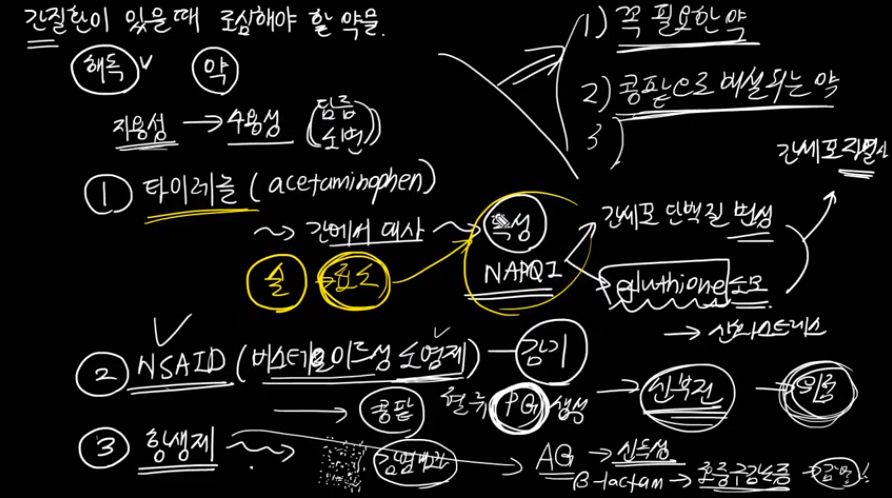 간질환이 있을때 조심해야 할 약물.
해독 약
지용성 → 수용성 (담즙 소변)
1) 꼭 필요한 약
2) 콩팥으로 배설되는 약
3)
① 타이레놀 (acetaminophen)
~> 간에서 대사 ~> 독성
NAPQI
술 → 효소
간세포 단백질 변성
gluthione 소모
→ 산화스트레스
간세포
② NSAID (비스테로이드성 소염제) — 감기
→ 콩팥 혈류 PG 생성 → 신부전 →
③ 항생제 ~>
→ AG → 신독성
β-lactam →